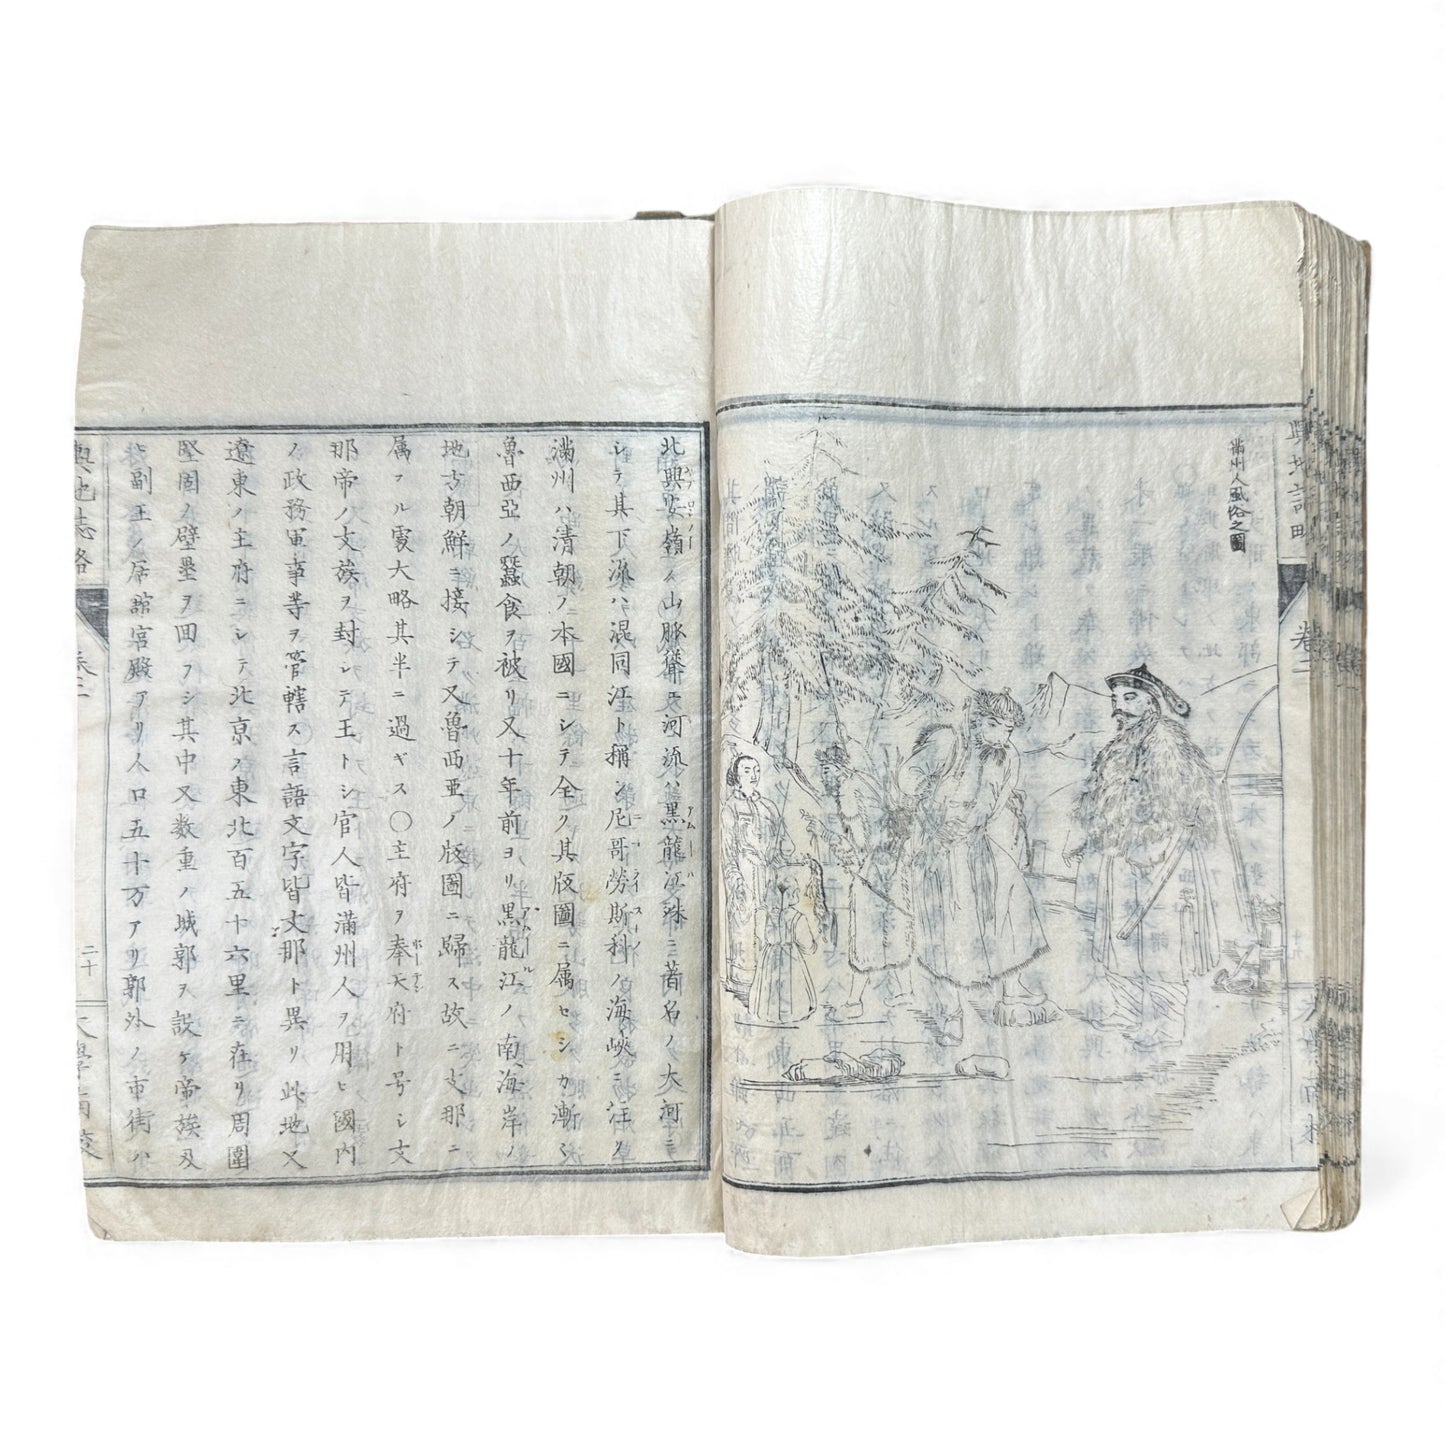 満州人風俗之圖
輿地誌略
卷二
大學南校
北興安嶺ノ山脈聳エ河流ハ黒龍江殊ニ著名ノ大河ニ
シテ其下流ハ混同江ト稱シ尼哥勞斯科ノ海峽ニ注グ
満州ハ清朝ノ本國ニシテ全ク其版圖ニ属セシガ漸ク
魯西亞ノ蠶食ヲ被リ又十年前ヨリ黒龍江ノ南海岸ノ
地方朝鮮ニ接シテ又魯西亜ノ版圖ニ歸ス故ニ支那ニ
属フル處大略其半ニ過ギス〇主府ヲ奉天府ト号シ支
那帝ノ支族ヲ封シテ王トシ官人皆滿州人ヲ用ヒ國内
ノ政務軍事等ヲ管轄ス言語文字皆支那ト異リ此地又
遼東ノ主府ニシテ北京ノ東北百五十六里ニ在リ周圍
堅固ノ壁壘ヲ回フシ其中又数重ノ城郭ヲ設ケ帝族及
副王ノ居舘宮殿アリ人口五十万アリ郭外ノ市街ハ
輿地誌略
卷二
二十
大學南校